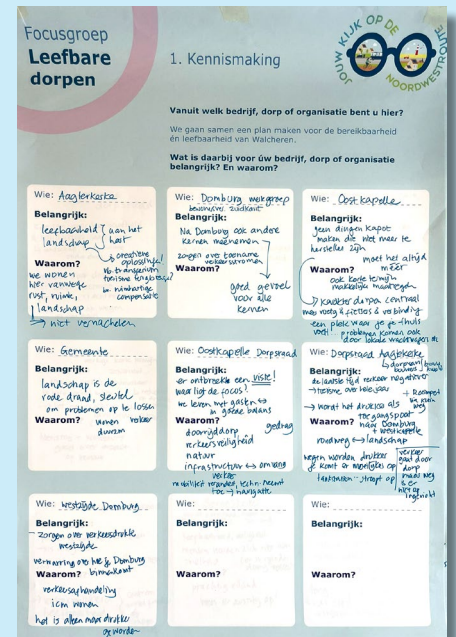 Focusgroep
Leefbare
dorpen
1. Kennismaking
JOUW KIJK OP DE
NOORDWESTROUTE
Vanuit welk bedrijf, dorp of organisatie bent u hier?
We gaan samen een plan maken voor de bereikbaarheid
én leefbaarheid van Walcheren.
Wat is daarbij voor úw bedrijf, dorp of organisatie
belangrijk? En waarom?
Wie: Aagtekerke
Belangrijk:
leefbaarheid aan het
landschap hart
creatieve
oplossing!
Waarom?
we wonen
hier vanwege
rust, ruimte,
landschap
→ niet vernachelen
Wie: Domburg werkgroep
Belangrijk:
Na Domburg ook andere
kernen meenemen
zorgen over toename
verkeersstromen
Waarom?
goed gevoel
voor alle
kernen
Wie: Oostkapelle
Belangrijk:
geen dingen kapot
maken die niet meer te
herstellen zijn
moet het altijd
meer
Waarom?
ook korte termijn
makkelijke maatregelen
karakter dorpen centraal
men voetg & fietsers & verbinding
een plek waar je je thuis
voelt
problemen komen ook
door lokale
Wie: Gemeente
Belangrijk:
landschap is de
rode draad, sleutel
om problemen op te lossen
Waarom? wonen
duurzm
Wie: Oostkapelle Dorpsraad
Belangrijk:
er ontbreekt een visie!
waar ligt de focus?
we leven met gasten ↔
in goede balans
Waarom? gedrag
doorrijddorp
verkeersveiligheid
natuur
infrastructuur ↔ omvang
verkeer
mobiliteit verandert, techn. neemt
toe → navigatie
Wie: Dorpsraad Aagtekerke
Belangrijk:
de laatste tijd verkeer negatiever
→ toerisme over hele jaar
→ wordt het drukker als
toegangspoort
Waarom? naar Domburg
+ westkapelle
randweg ↔ landschap
wegen worden drukker
je komt er moeilijker op
verkeer
gaat door
dorp
maar weg
is er
niet op
ingericht
Wie: westzijde Domburg
Belangrijk:
- zorgen over verkeersdrukte
westzijde
verwarring over hoe je Domburg
binnenkomt
Waarom?
verkeersafhandeling
icm wonen
het is alleen maar drukker
geworden
Wie:
Belangrijk:
Waarom?
Wie:
Belangrijk:
Waarom?